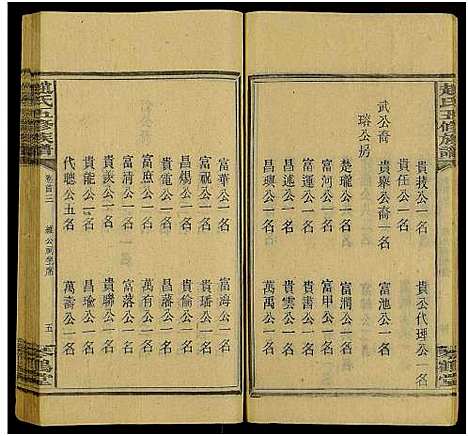 趙氏五修族譜
武公裔
瑢公房
貴莪公一名
貴任公一名
貴舉公裔一名
貴渼公一名
楚瓏公一名
富運公一名
昌述公一名
昌興公一名
貴公代理公一名
富池公一名
富潤公一名
富甲公一名
貴書公一名
貴雲公一名
萬禹公一名
琴鶴堂
富華公一名
富祝公一名
昌煬公一名
貴電公一名
富庶公一名
富清公一名
貴談公一名
貴能公一名
代聰公五名
富海公一名
貴璠公一名
貴倫公一名
昌藩公一名
萬有公一名
富落公一名
貴聯公一名
昌瑜公一名
萬壽公一名
趙氏五修族譜
卷首三
五
琴鶴堂